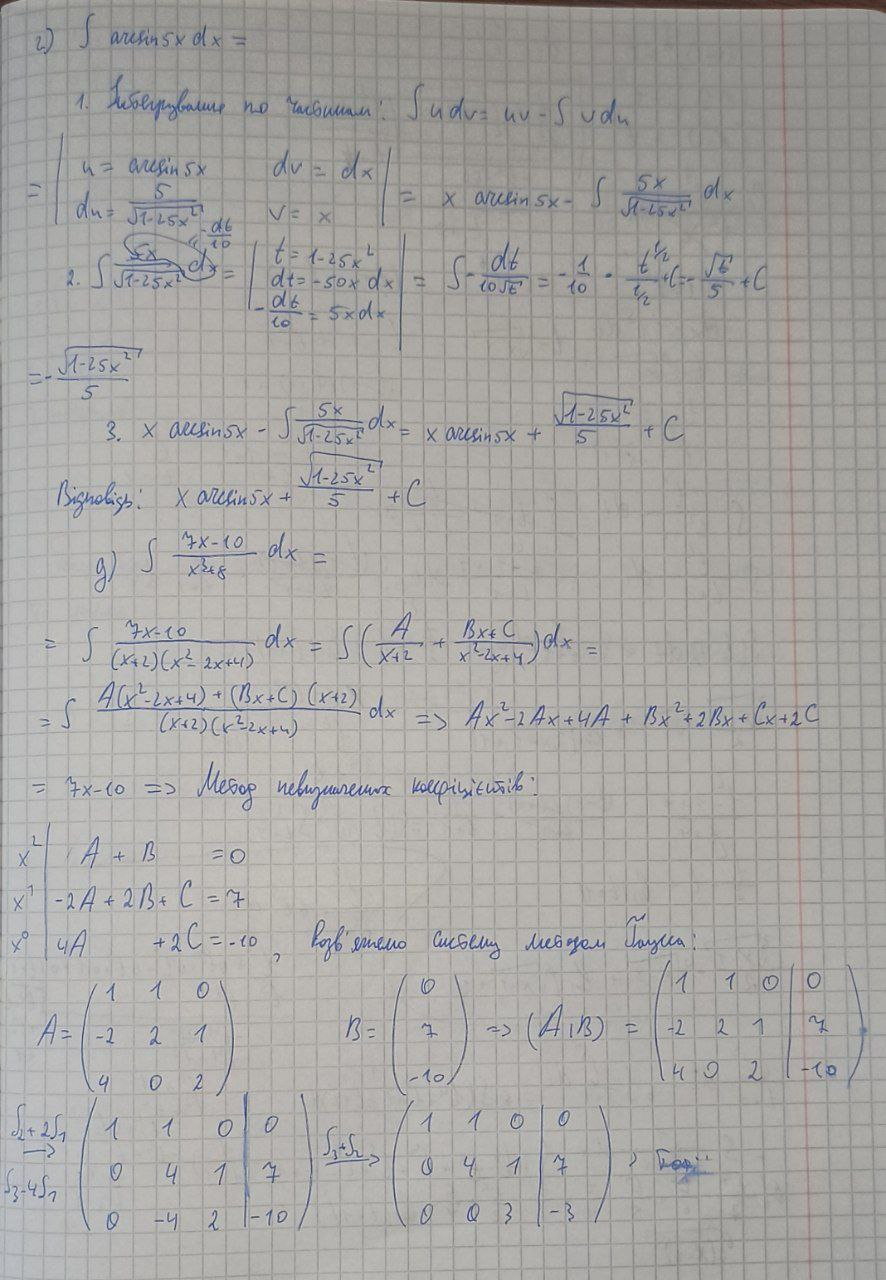 г) ∫ arcsin5x dx =
1. Інтегрування по частинам: ∫ u dv = uv - ∫ v du
= | u = arcsin5x dv = dx | = x arcsin5x - ∫ 5x/√(1-25x²) dx
du = 5/√(1-25x²) v = x
2. ∫ 5x/√(1-25x²) dx -dt/10 = | t = 1-25x² | = ∫ - dt/(10√t) = - 1/10 · t^(1/2)/(1/2) + C = - √t/5 + C
dt = -50x dx
- dt/10 = 5x dx
= - √(1-25x²)/5
3. x arcsin5x - ∫ 5x/√(1-25x²) dx = x arcsin5x + √(1-25x²)/5 + C
Відповідь: x arcsin5x + √(1-25x²)/5 + C
д) ∫ (7x-10)/(x³+8) dx =
= ∫ (7x-10)/((x+2)(x²-2x+4)) dx = ∫ (A/(x+2) + (Bx+C)/(x²-2x+4)) dx =
= ∫ (A(x²-2x+4) + (Bx+C)(x+2))/((x+2)(x²-2x+4)) dx => Ax²-2Ax+4A + Bx²+2Bx+Cx+2C
= 7x-10 => Метод невизначених коефіцієнтів:
x² | A + B = 0
x¹ | -2A + 2B + C = 7
x⁰ | 4A + 2C = -10, Розв'яжемо систему методом Гаусса:
A = ( 1 1 0 ) B = ( 0 ) => (A|B) = ( 1 1 0 | 0 )
( -2 2 1 ) ( 7 ) ( -2 2 1 | 7 )
( 4 0 2 ) ( -10 ) ( 4 0 2 | -10 )
S₂+2S₁ → S₃-4S₁ ( 1 1 0 | 0 ) S₃+S₂ → ( 1 1 0 | 0 ) ,
( 0 4 1 | 7 ) ( 0 4 1 | 7 )
( 0 -4 2 | -10 ) ( 0 0 3 | -3 )